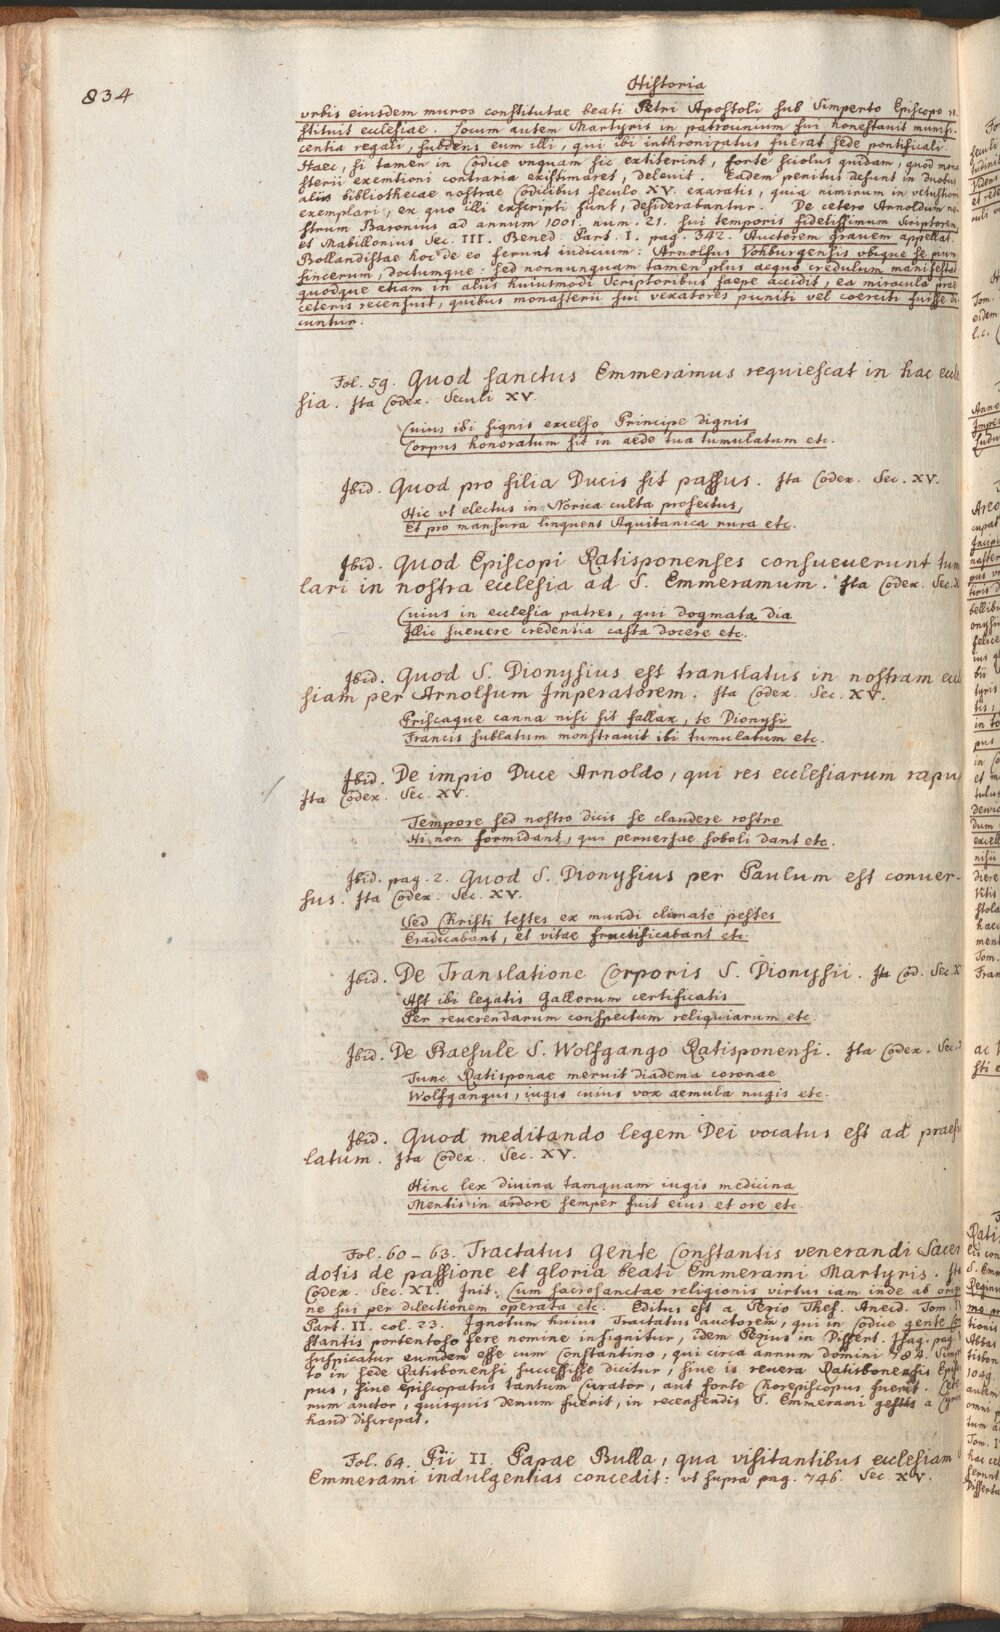 834
Historia
vrbis eiusdem muros constitutae beati Petri Apostoli sub Simperto Episcopo re-
stituit ecclesiae. Locum autem Martyris in patrocinium sui honestauit munifi-
centia regali, subdens eum illi, qui ibi inthronizatus fuerat sede pontificali.
Haec, si tamen in Codice vnquam sic extiterint, forte sciolus quidam, quod mona-
sterii exemtioni contraria existimaret, deleuit. Eadem penitus desunt in duobus
aliis bibliothecae nostrae Codicibus seculo XV. exaratis, quia nimirum in vetustiori
exemplari, ex quo illi exscripti sunt, desiderabantur. De cetero Arnoldum no-
strum Baronius ad annum 1001. num. 21. sui temporis fidelissimum Scriptorem,
et Mabillonius Sec. III. Bened. Part. I. pag. 342. Auctorem grauem appellat.
Bollandistae hoc de eo ferunt iudicium: Arnolfus Vohburgensis vbique se pium
sincerum, doctumque: sed nonnunquam tamen plus aequo credulum manifestat
quodque etiam in aliis huiusmodi Scriptoribus saepe accidit, ea miracula prae
ceteris recensuit, quibus monasterii sui vexatores puniti vel coerciti fuisse di-
cuntur.
Fol. 59. Quod sanctus Emmeramus requiescat in hac eccle
sia. Ita Codex. Seculi XV.
Cuius ibi signis excelso Principe dignis
Corpus honoratum sit in aede tua tumulatum etc.
Ibid. Quod pro filia Ducis sit passus. Ita Codex. Sec. XV.
Hic vt electus in Norica culta profectus,
Et pro mansura linquens Aquitanica rura etc.
Ibid. Quod Episcopi Ratisponenses consueuerunt tum
lari in nostra ecclesia ad S. Emmeramum. Ita Codex. Sec. X
Cuius in ecclesia patres, qui dogmata dia
Illic sueuere credentia casta docere etc.
Ibid. Quod S. Dionysius est translatus in nostram eccl
siam per Arnolfum Imperatorem. Ita Codex. Sec. XV.
Priscaque canna nisi sit fallax, te Dionysi
Francis sublatum monstrauit ibi tumulatum etc.
Ibid. De impio Duce Arnoldo, qui res ecclesiarum rapu
Ita Codex. Sec. XV.
Tempore sed nostro dicis se claudere rostro
Hi non formidant, qui peruersae soboli dant etc.
Ibid. pag. 2. Quod S. Dionysius per Paulum est conuer-
sus. Ita Codex. Sec. XV.
Sed Christi testes ex mundi climate pestes
Eradicabant, et vitae fructificabant etc.
Ibid. De Translatione Corporis S. Dionysii. Ita Cod. Sec. X
Ast ibi legatis Gallorum certificatis
Per reuerendarum conspectum reliquiarum etc.
Ibid. De Praesule S. Wolfgango Ratisponensi. Ita Codex. Sec.
Tunc Ratisponae meruit diadema coronae
Wolfgangus, iugis cuius vox aemula nugis etc.
Ibid. Quod meditando legem Dei vocatus est ad praesu
latum. Ita Codex. Sec. XV.
Hinc lex diuina tamquam iugis medicina
Mentis in ardore semper fuit eius et ore etc.
Fol. 60 - 63. Tractatus Gente Constantis venerandi Sacer
dotis de passione et gloria beati Emmerami Martyris. Ita
Codex. Sec. XI. Init. Cum sacrosanctae religionis virtus iam inde ab origi
ne sui per dilectionem operata etc. Editus est a Pezio Thes. Anecd. Tom. I
Part. II. col. 23. Ignotum huius Tractatus auctorem, qui in Codice gente Con
stantis portentoso fere nomine insignitur, idem Pezius in Dissert. Isag. pag.
suspicatur eumdem esse cum Constantino, qui circa annum Domini 784. Simp
to in sede Ratisbonensi successisse dicitur, siue is reuera Ratisbonensis Epis
pus, siue episcopatus tantum Curator, aut forte Chorepiscopus fuerit. Cete
rum auctor, quisquis demum fuerit, in recensendis S. Emmerami gestis a Cyri
haud discrepat.
Fol. 64. Pii II. Papae Bulla, qua visitantibus ecclesiam
Emmerami indulgentias concedit: vt supra pag. 746. Sec XV.